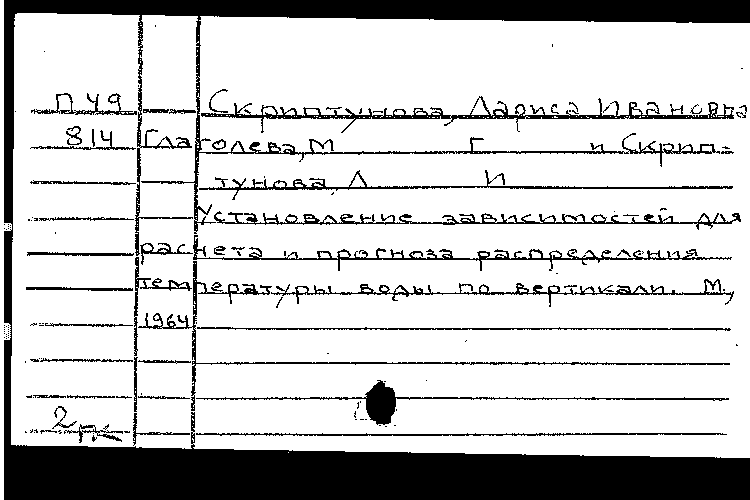 П49 Скриптунова, Лариса Ивановна
814 Глаголева, М Г и Скрип-
тунова, Л И
Установление зависимостей для
расчета и прогноза распределения
температуры воды по вертикали. М.,
1964
2